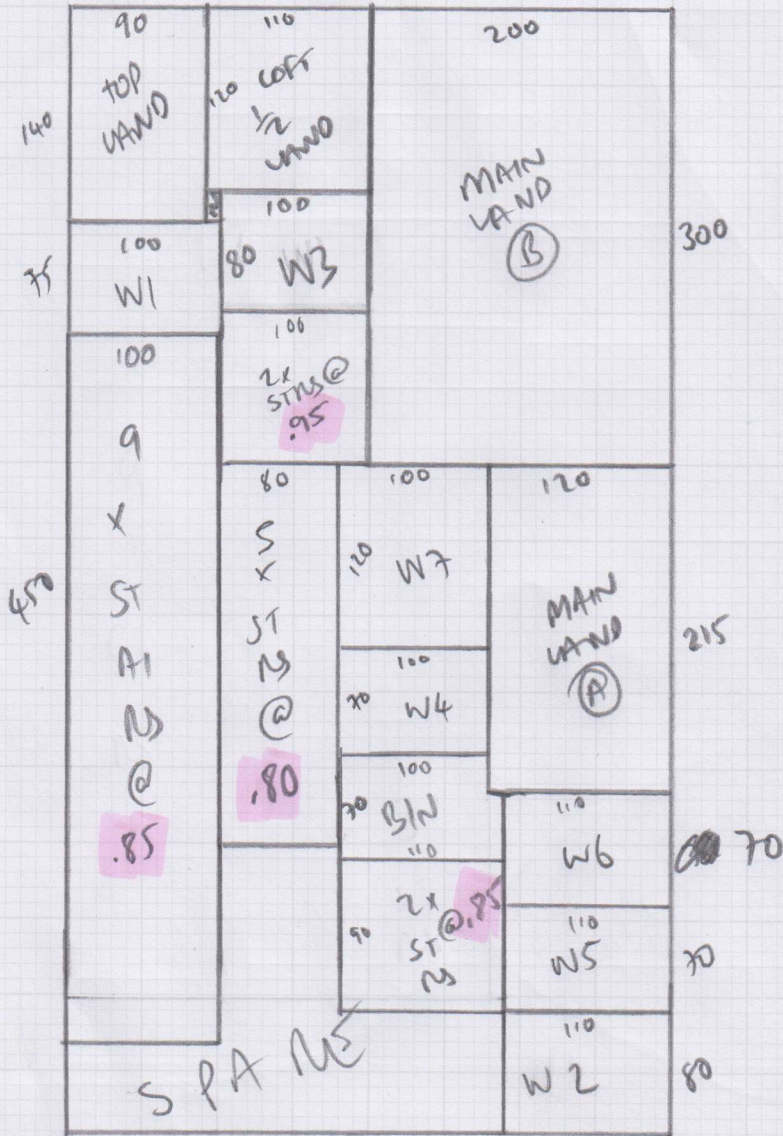 90
TOP
LAND
140
110
LOFT
120
1/2
LAND
200
MAIN
LAND
B
300
100
W1
75
100
80 W3
100
2X
STRS @
.95
100
9
X
ST
AI
RS
@
.85
450
80
5
X
ST
RS
@
.80
100
120 W7
100
70 W4
100
70 BIN
110
90
2X
@.85
ST
RS
120
MAIN
LAND
A
215
110
W6
70
110
W5
70
110
W2
80
SPARE